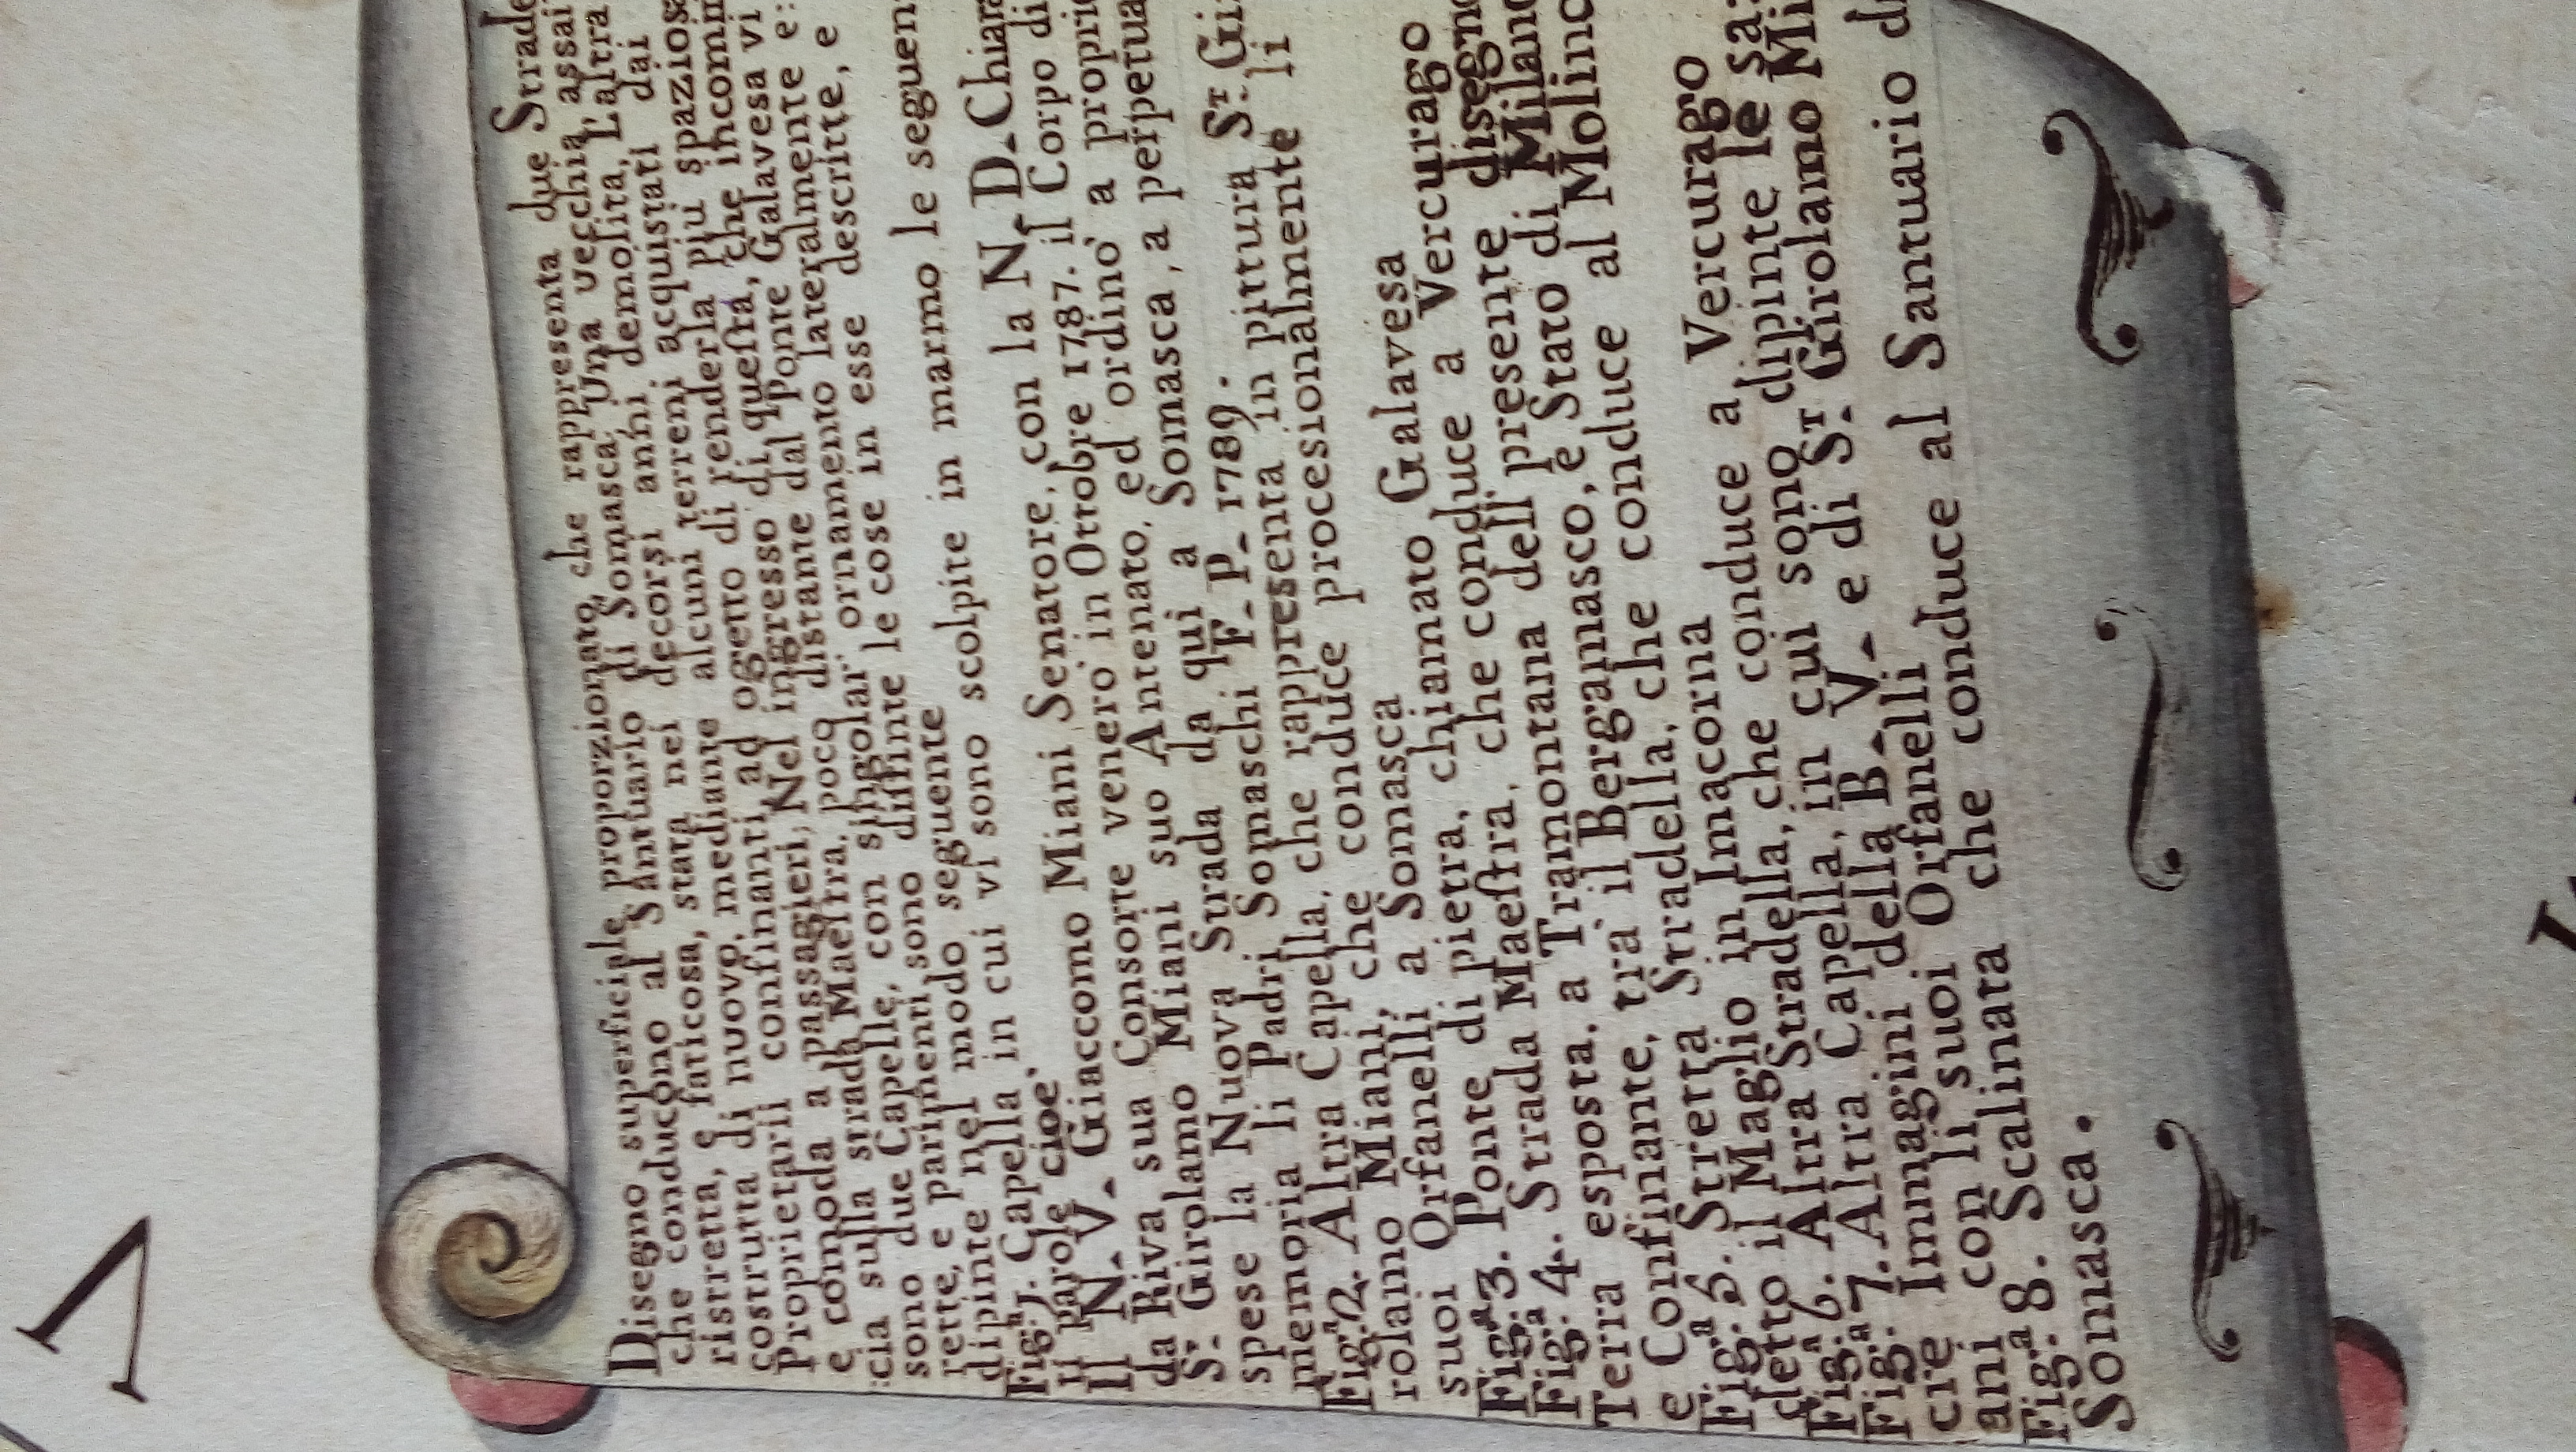 Disegno superficiale proporzionato, che rappresenta due Strade
che conducono al Santuario di Somasca, Una vecchia, assai
ristretta, e faticosa, stata nei decorsi anni demolita, L'altra
costrutta di nuovo, mediante alcuni terreni acquistati dai
Proprietarii confinanti, ad oggetto di renderla più spaziosa
e comoda a passagieri; Nel ingresso di questa, che incomin
:cia sulla strada Maestra, poco distante dal Ponte Galavesa vi
sono due Capelle, con singolar ornamento lateralmente e:
rette, e parimenti sono diffinte le cose in esse descritte, e
dipinte nel modo seguente
Fig.a 1. Capella in cui vi sono scolpite in marmo le seguen
ti parole cioe.
Il N. V. Giaccomo Miani Senatore, con la N. D. Chiara
da Riva sua Consorte venero in Ottobre 1787. il Corpo di
S.t Girolamo Miani suo Antenato, ed ordinò a proprie
spese la Nuova Strada da qui a Somasca, a perpetua
memoria li Padri Somaschi F. P. 1789.
Fig.a 2. Altra Capella, che rappresenta in pittura S.t Gi
rolamo Miani, che conduce processionalmente li
suoi Orfanelli a Somasca
Fig.a 3. Ponte di pietra, chiamato Galavesa
Fig.a 4. Strada Maestra, che conduce a Vercurago
Terra esposta, a Tramontana dell presente disegno
e Confinante, trà il Bergamasco, e Stato di Milano
Fig.a 5. Stretta Stradella, che conduce al Molino
detto il Maglio in Imacorna
Fig.a 6. Altra Stradella, che conduce a Vercurago
Fig.a 7. Altra Capella, in cui sono dipinte le sa:
cre Immagini della B. V. e di S.t Girolamo Mi
ani con li suoi Orfanelli
Fig.a 8. Scalinata che conduce al Santuario di
Somasca.